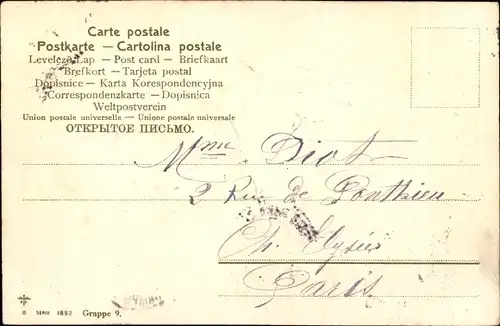 Carte postale
Postkarte — Cartolina postale
Levelező-Lap — Post card — Briefkaart
Brefkort — Tarjeta postal
Dopisnice — Karta Korespondencyjna
Correspondenzkarte — Dopisnica
Weltpostverein
Union postale universelle — Unione postale universale
ОТКРЫТОЕ ПИСЬМО.
Mme Diot
2 Rue de Ponthieu
Ch. Elysées
Paris
SERIE 1882 Gruppe 9.